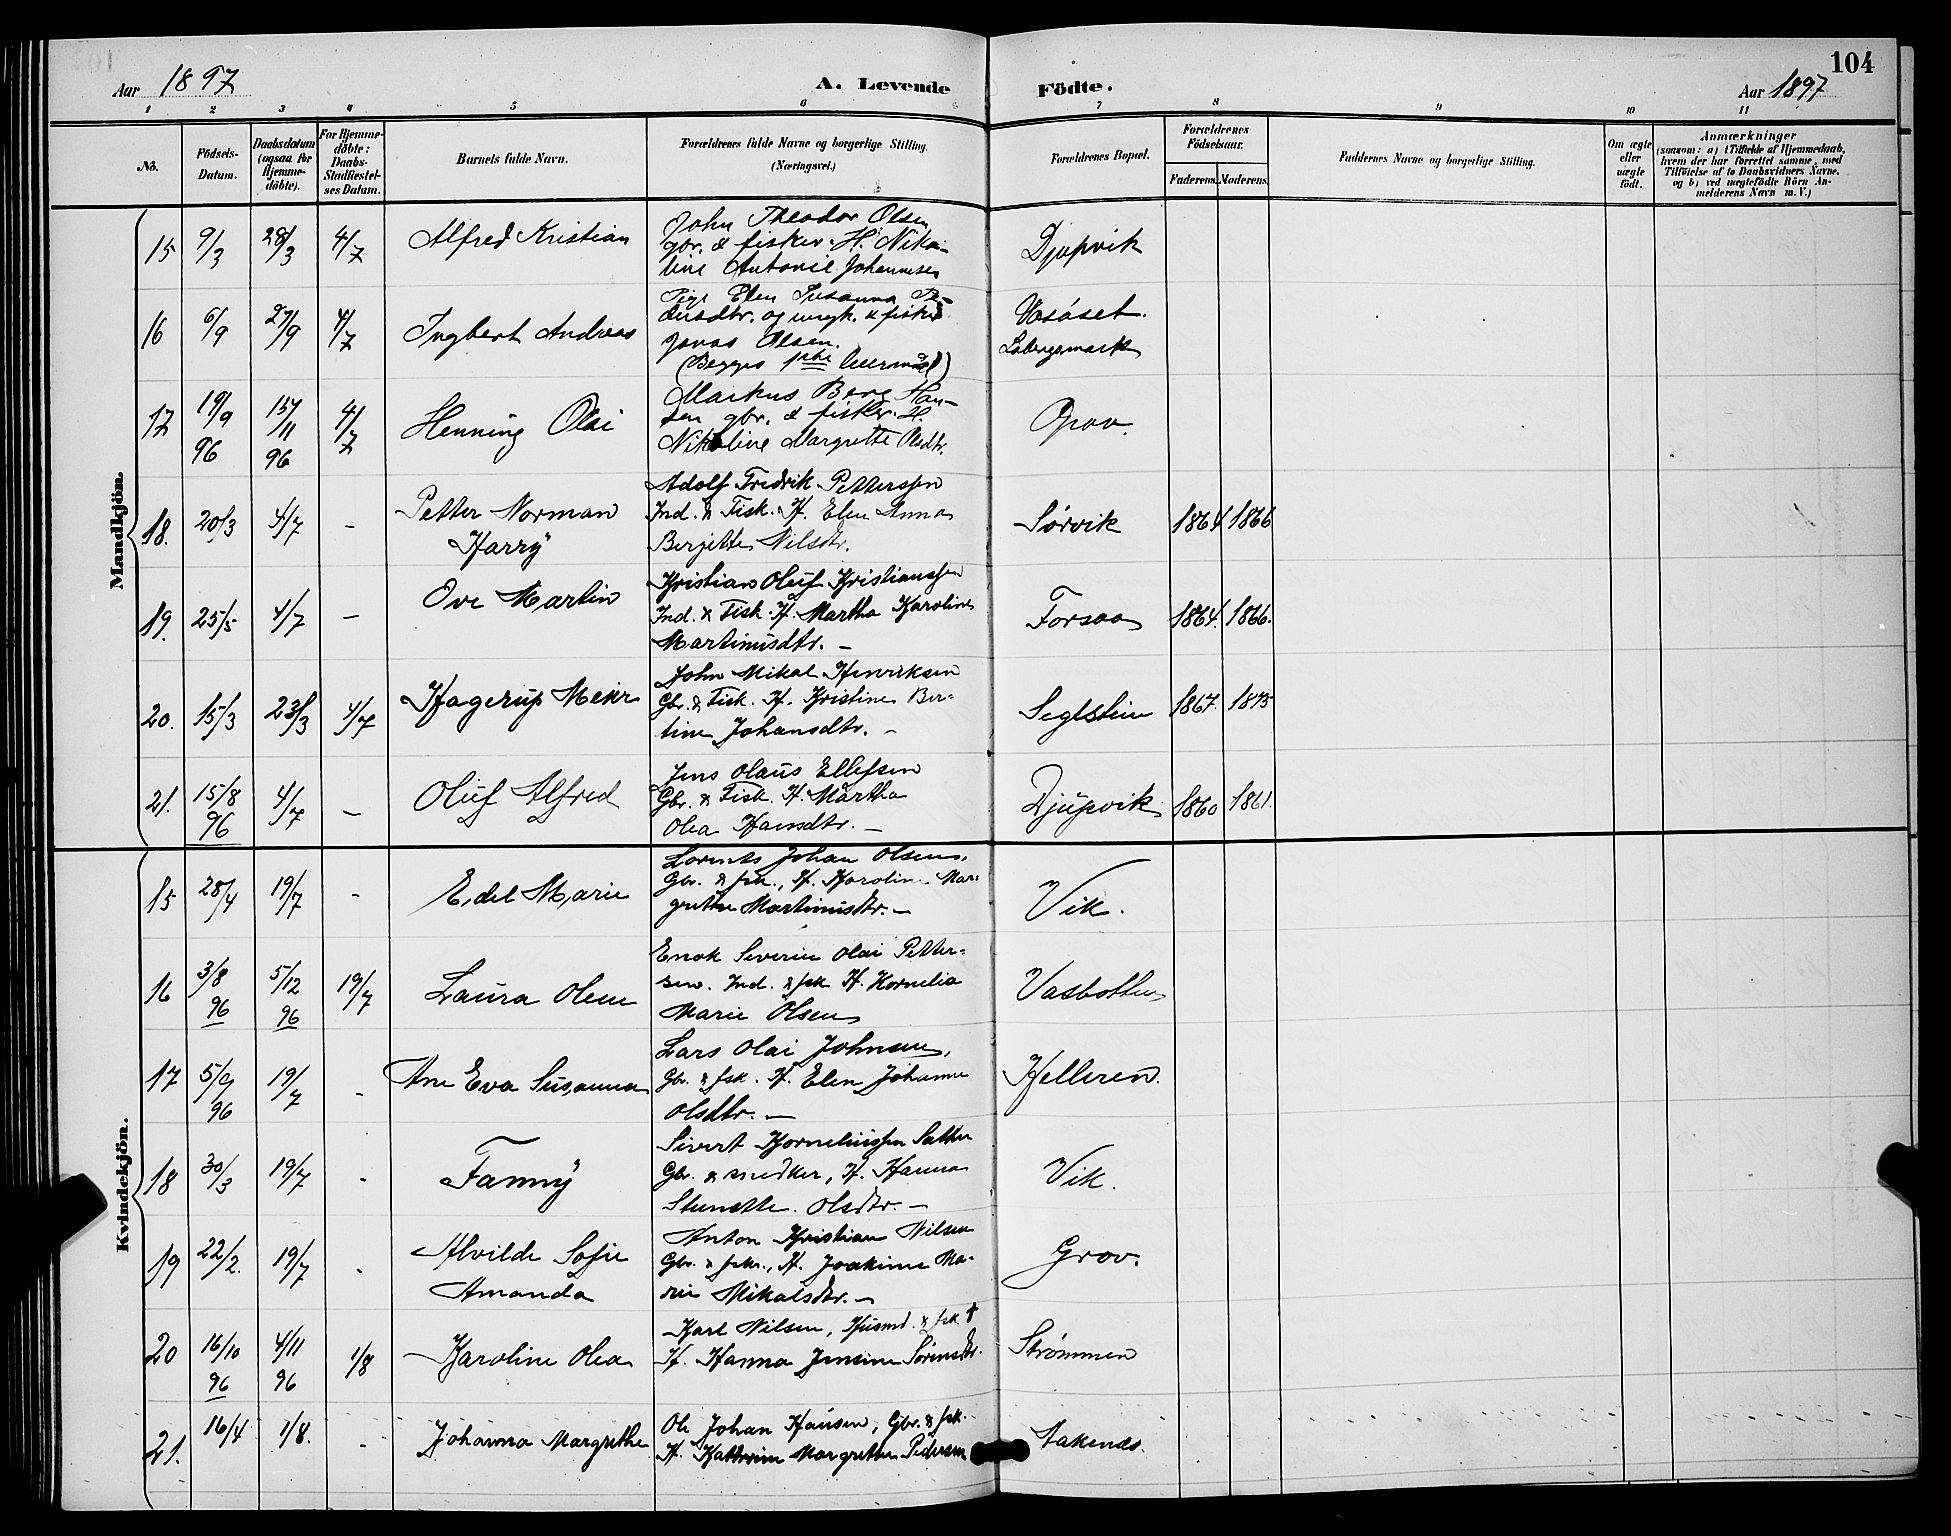 104
Aar 1897 A. Levende Födte. Aar 1897
1 2 3 4 5 6 7 8 9 10 11
No.
Födsels-Datum.
Daabsdatum (ogsaa for Hjemme-döbte).
For Hjemme-döbte: Daabs-Stadfæstel-ses Datum.
Barnets fulde Navn.
Forældrenes fulde Navne og borgerlige Stilling.
(Næringsvei.)
Forældrenes Bopæl.
Forældrenes Födselsaar.
Faderens. Moderens.
Faddernes Navne og borgerlige Stilling.
Om ægte eller uægte födt.
Anmærkninger
(saasom: a) i Tilfælde af Hjemmedaab,
hvem der har forrettet samme, med
Tilföielse af to Daabsvidners Navne,
og b) ved uægtefödte Börn An-
melderens Navn m. V.)
Mandkjön.
15 9/3 28/3 4/7 Alfred Kristian
John Theodor Olsen
gbr. & fisker. H. Niko-
line Antonie Johannesen
Djupvik
16 6/9 27/9 4/7 Ingbert Andreas
Pige Elen Susanna Pe-
dersdtr. og ungk. & fisker
Jonas Olsen.
(Begges 1ste Leiermaal)
Vasåset.
17 19/9 96 15/11 96 4/7 Henning Olai
Markus Berg Han-
sen gbr. & fisker. H.
Nikoline Margrette Olsdtr.
Grov.
18. 20/3 4/7 - Petter Norman
Harry
Adolf Fredrik Pettersen
Ind. & Fisk. H. Elen Anna
Bergitte Nilsdtr.
Sørvik 1864 1866
19. 25/5 4/7 - Ove Martin
Kristian Oluf Kristianssen
Ind. & Fisk. H. Martha Karoline
Martinusdtr. -
Forsaa 1864. 1866.
20. 15/3 23/3 4/7 Hagerup Meier
John Mikal Henriksen
Gbr. & Fisk. H. Kristine Ber-
tine Johansdtr. -
Seglstein 1867. 1873
21. 15/8 96 4/7 - Oluf Alfred
Jens Olaus Ellefsen
Gbr. & Fisk. H. Martha
Olea Hansdtr. -
Djupvik 1860 1861.
Kvindekjön.
15 28/4 19/7 - Edel Marie
Lorents Johan Olsen,
Gbr. & fsk., H. Karoline Mar-
grethe Martinusdtr. -
Vik.
16 3/8 96 5/12 96 19/7 Laura Olene
Enok Severin Olai Petter-
sen. Ind. & fsk H. Kornelia
Marie Olsen
Vasbotten
17 5/9 96 19/7 - Ane Eva Susanna
Lars Olai Johnsen,
Gbr. & fsk. H. Elen Johanne
Olsdtr. -
Helleren.
18 30/3 19/7 - Fanny
Sivert Korneliussen Sætter
Gbr. & snedker, H. Hanna
Olsdtr. -
Vik.
19 22/2. 19/7 - Alvilde Sofie
Amanda
Anton Kristian Nilsen
Gbr. & fsk., H. Joakime Ma-
rie Mikalsdtr. -
Grov.
20 16/10 96 4/11 96 1/8 Karoline Olea
Karl Nilsen, Husmd. & fsk. &
H. Hanna Jensine Sørensdtr.
Strømmen
21. 16/4 1/8. - Johanna Margrethe
Ole Johan Hansen, Gbr. & fsk.
H. Kathrine Margrethe Pedersen